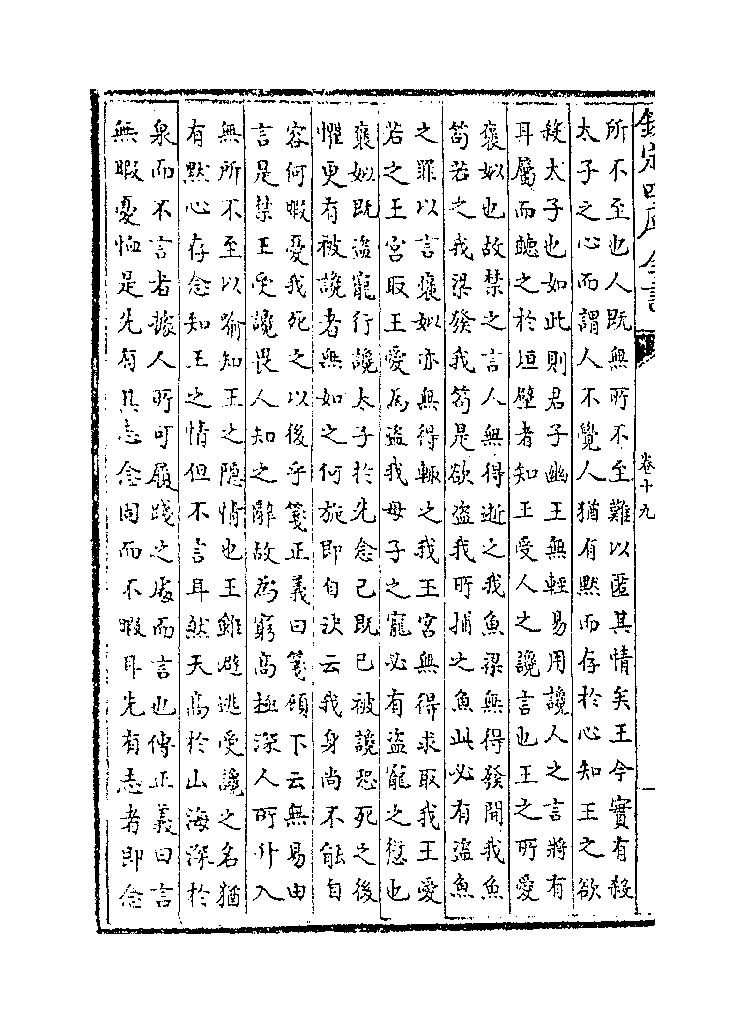 欽定四庫全書
卷十九
所不至也人既無所不至難以匿其情矣王今實有殺
太子之心而謂人不覺人猶有黙而存於心知王之欲
殺太子也如此則君子幽王無輕易用讒人之言將有
耳屬而聽之於垣壁者知王受人之讒言也王之所愛
褒姒也故禁之言人無得逝之我魚梁無得發開我魚
笱若之我梁發我笱是欲盜我所捕之魚此必有盜魚
之罪以言褒姒亦無得輙之我王宮無得求取我王愛
若之王宮取王愛為盜我母子之寵必有盜寵之愆也
褒姒既盜寵行讒太子於先念己既已被讒恐死之後
懼更有被讒者無如之何旋即自決云我身尚不能自
容何暇憂我死之以後乎箋正義曰箋頃下云無易由
言是禁王受讒畏人知之辭故為窮高極深人所升入
無所不至以喻知王之隠情也王雖避逃受讒之名猶
有黙心存念知王之情但不言耳然天高於山海深於
泉而不言者據人所可履踐之處而言也傳正義曰言
無暇憂恤是先有其志念固而不暇耳先有志者即念